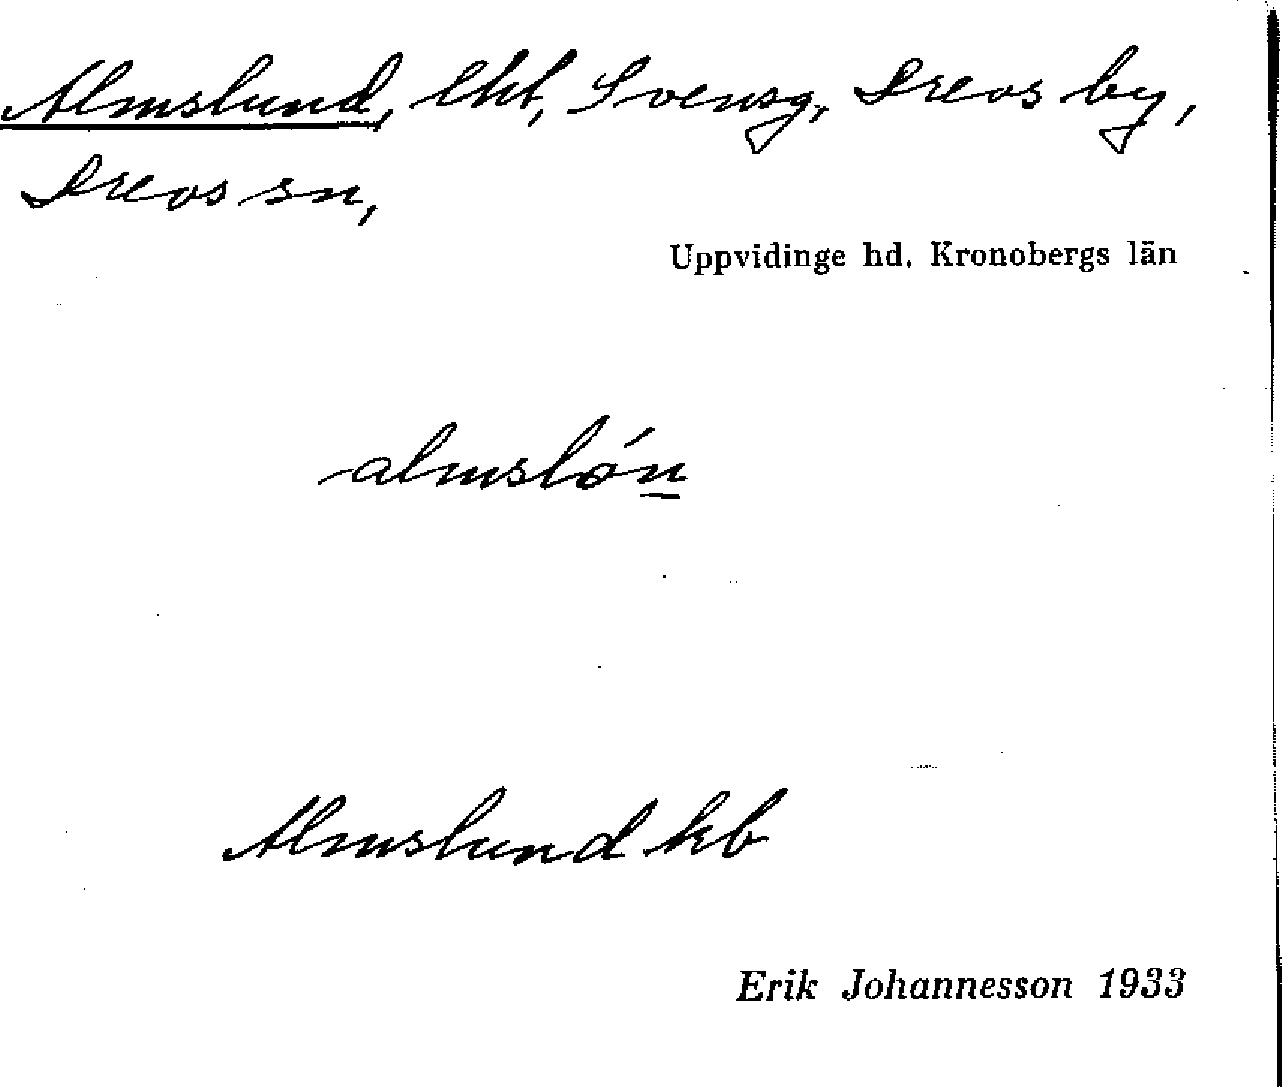 Almslund, lht, Svensg, Drevs by,
Drevs sn,
Uppvidinge hd. Kronobergs län
almslón
Almslund kb
Erik Johannesson 1933